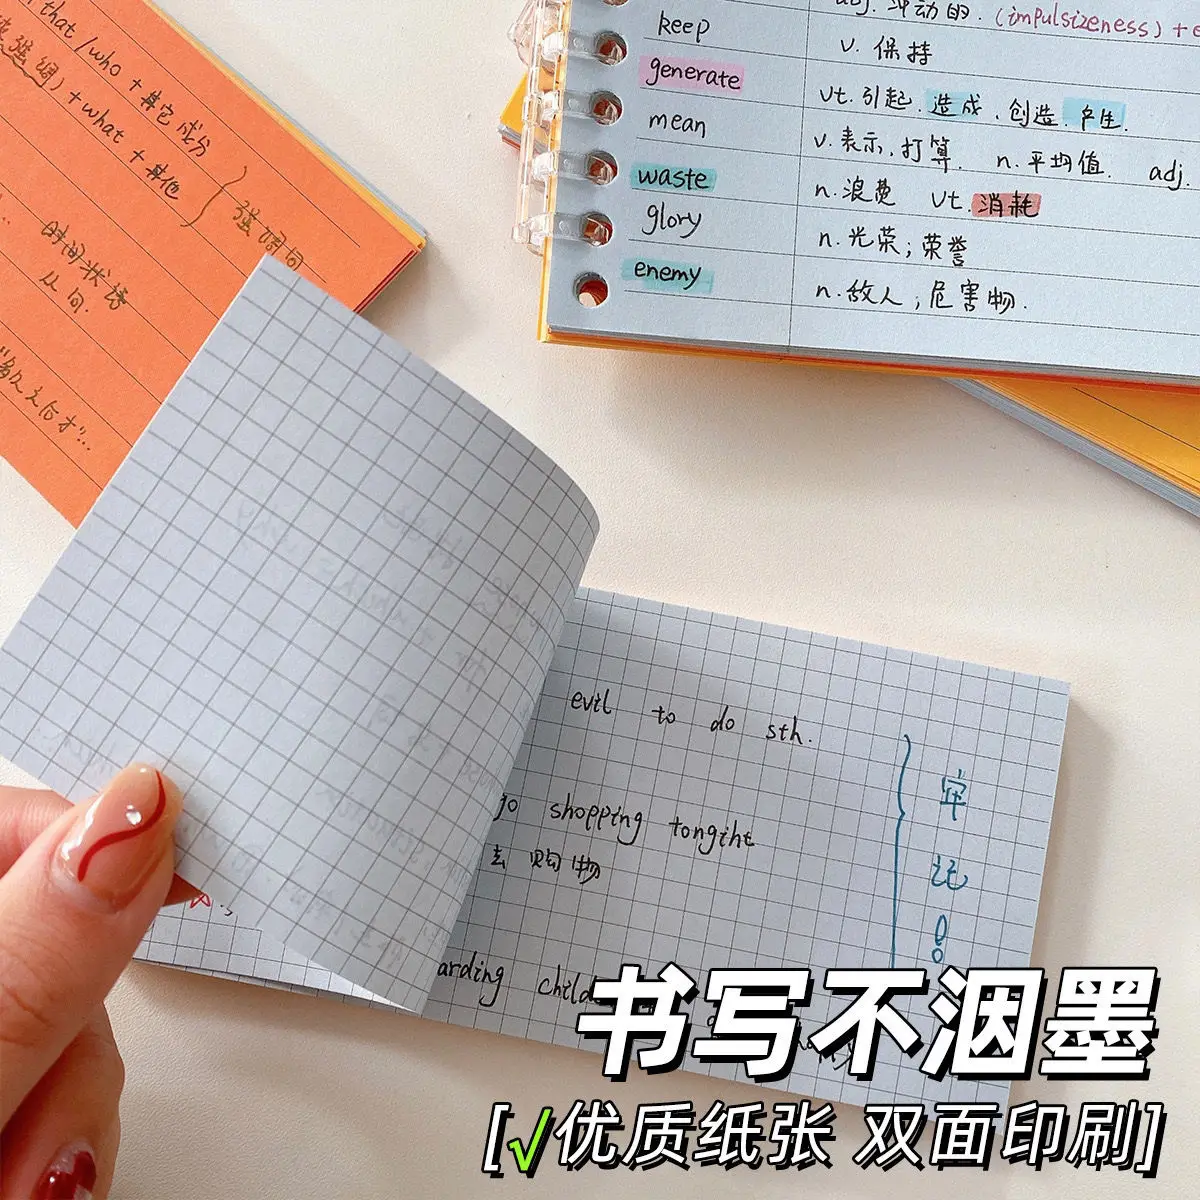 that/who + 其它成分
) + what + 其他
强调句
时间状语
从句.
adj. 冲动的. (impulsizeness) +
keep v. 保持
generate vt. 引起. 造成、创造. 产生.
mean v. 表示, 打算. n. 平均值. adj.
waste n. 浪费 vt. 消耗
glory n. 光荣; 荣誉
enemy n. 敌人; 危害物.
evil to do sth.
go shopping tongiht
去 购物
arding
牢记!
书写不洇墨
[√优质纸张 双面印刷]